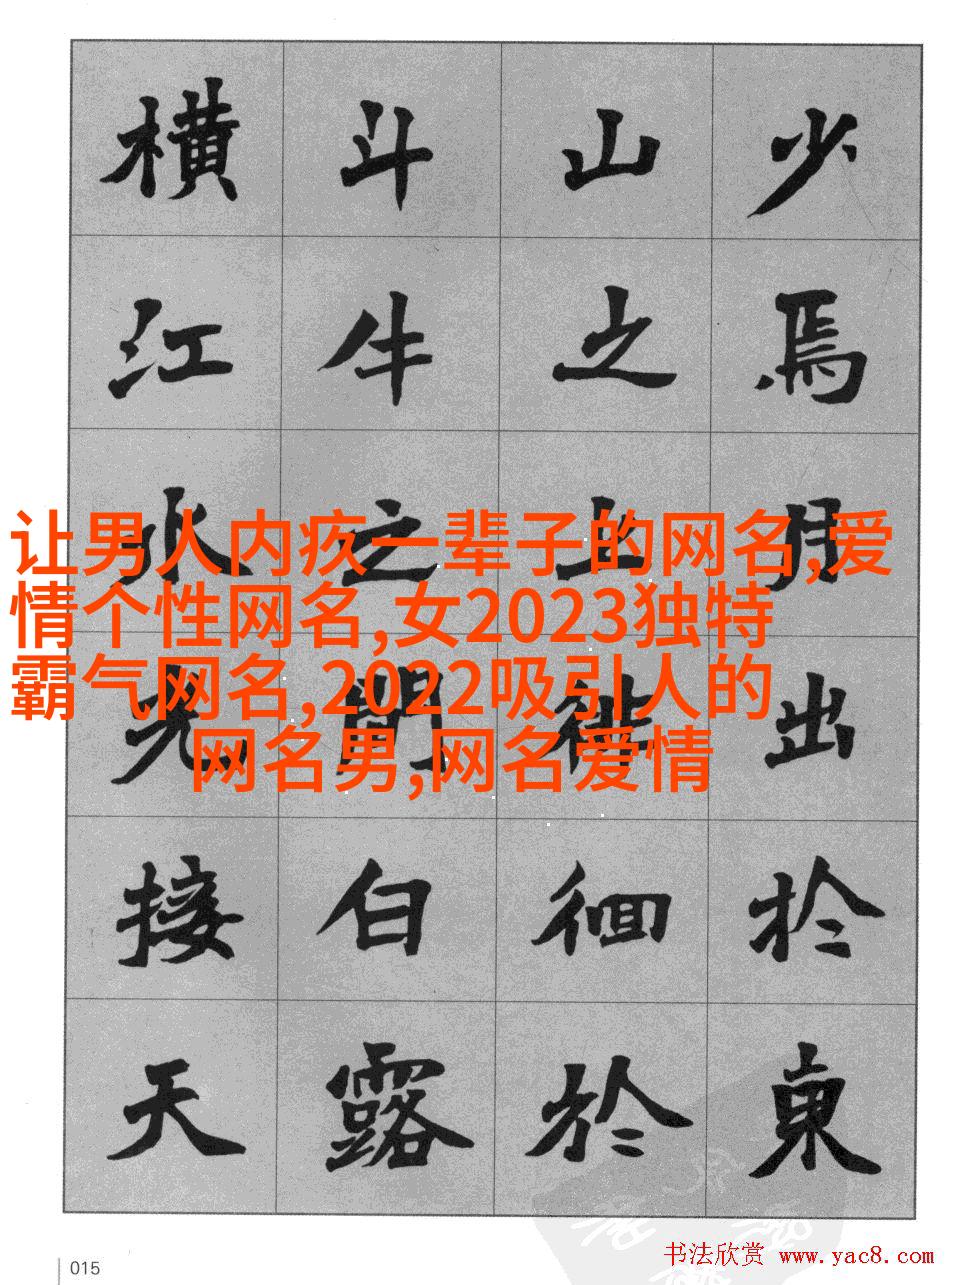 少焉月出於東
山之上徘徊於
斗牛之間白露
横江水光接天
让男人内疚一辈子的网名,爱
情个性网名,女2023独特
霸气网名,2022吸引人的
网名男,网名爱情
015
书法欣赏 www.yac8.com